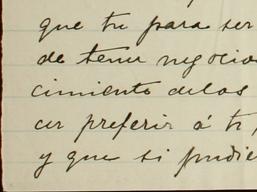 que tu para ser
de tener negocio
cimiento delas
cer preferir á ti,
y que si pudie